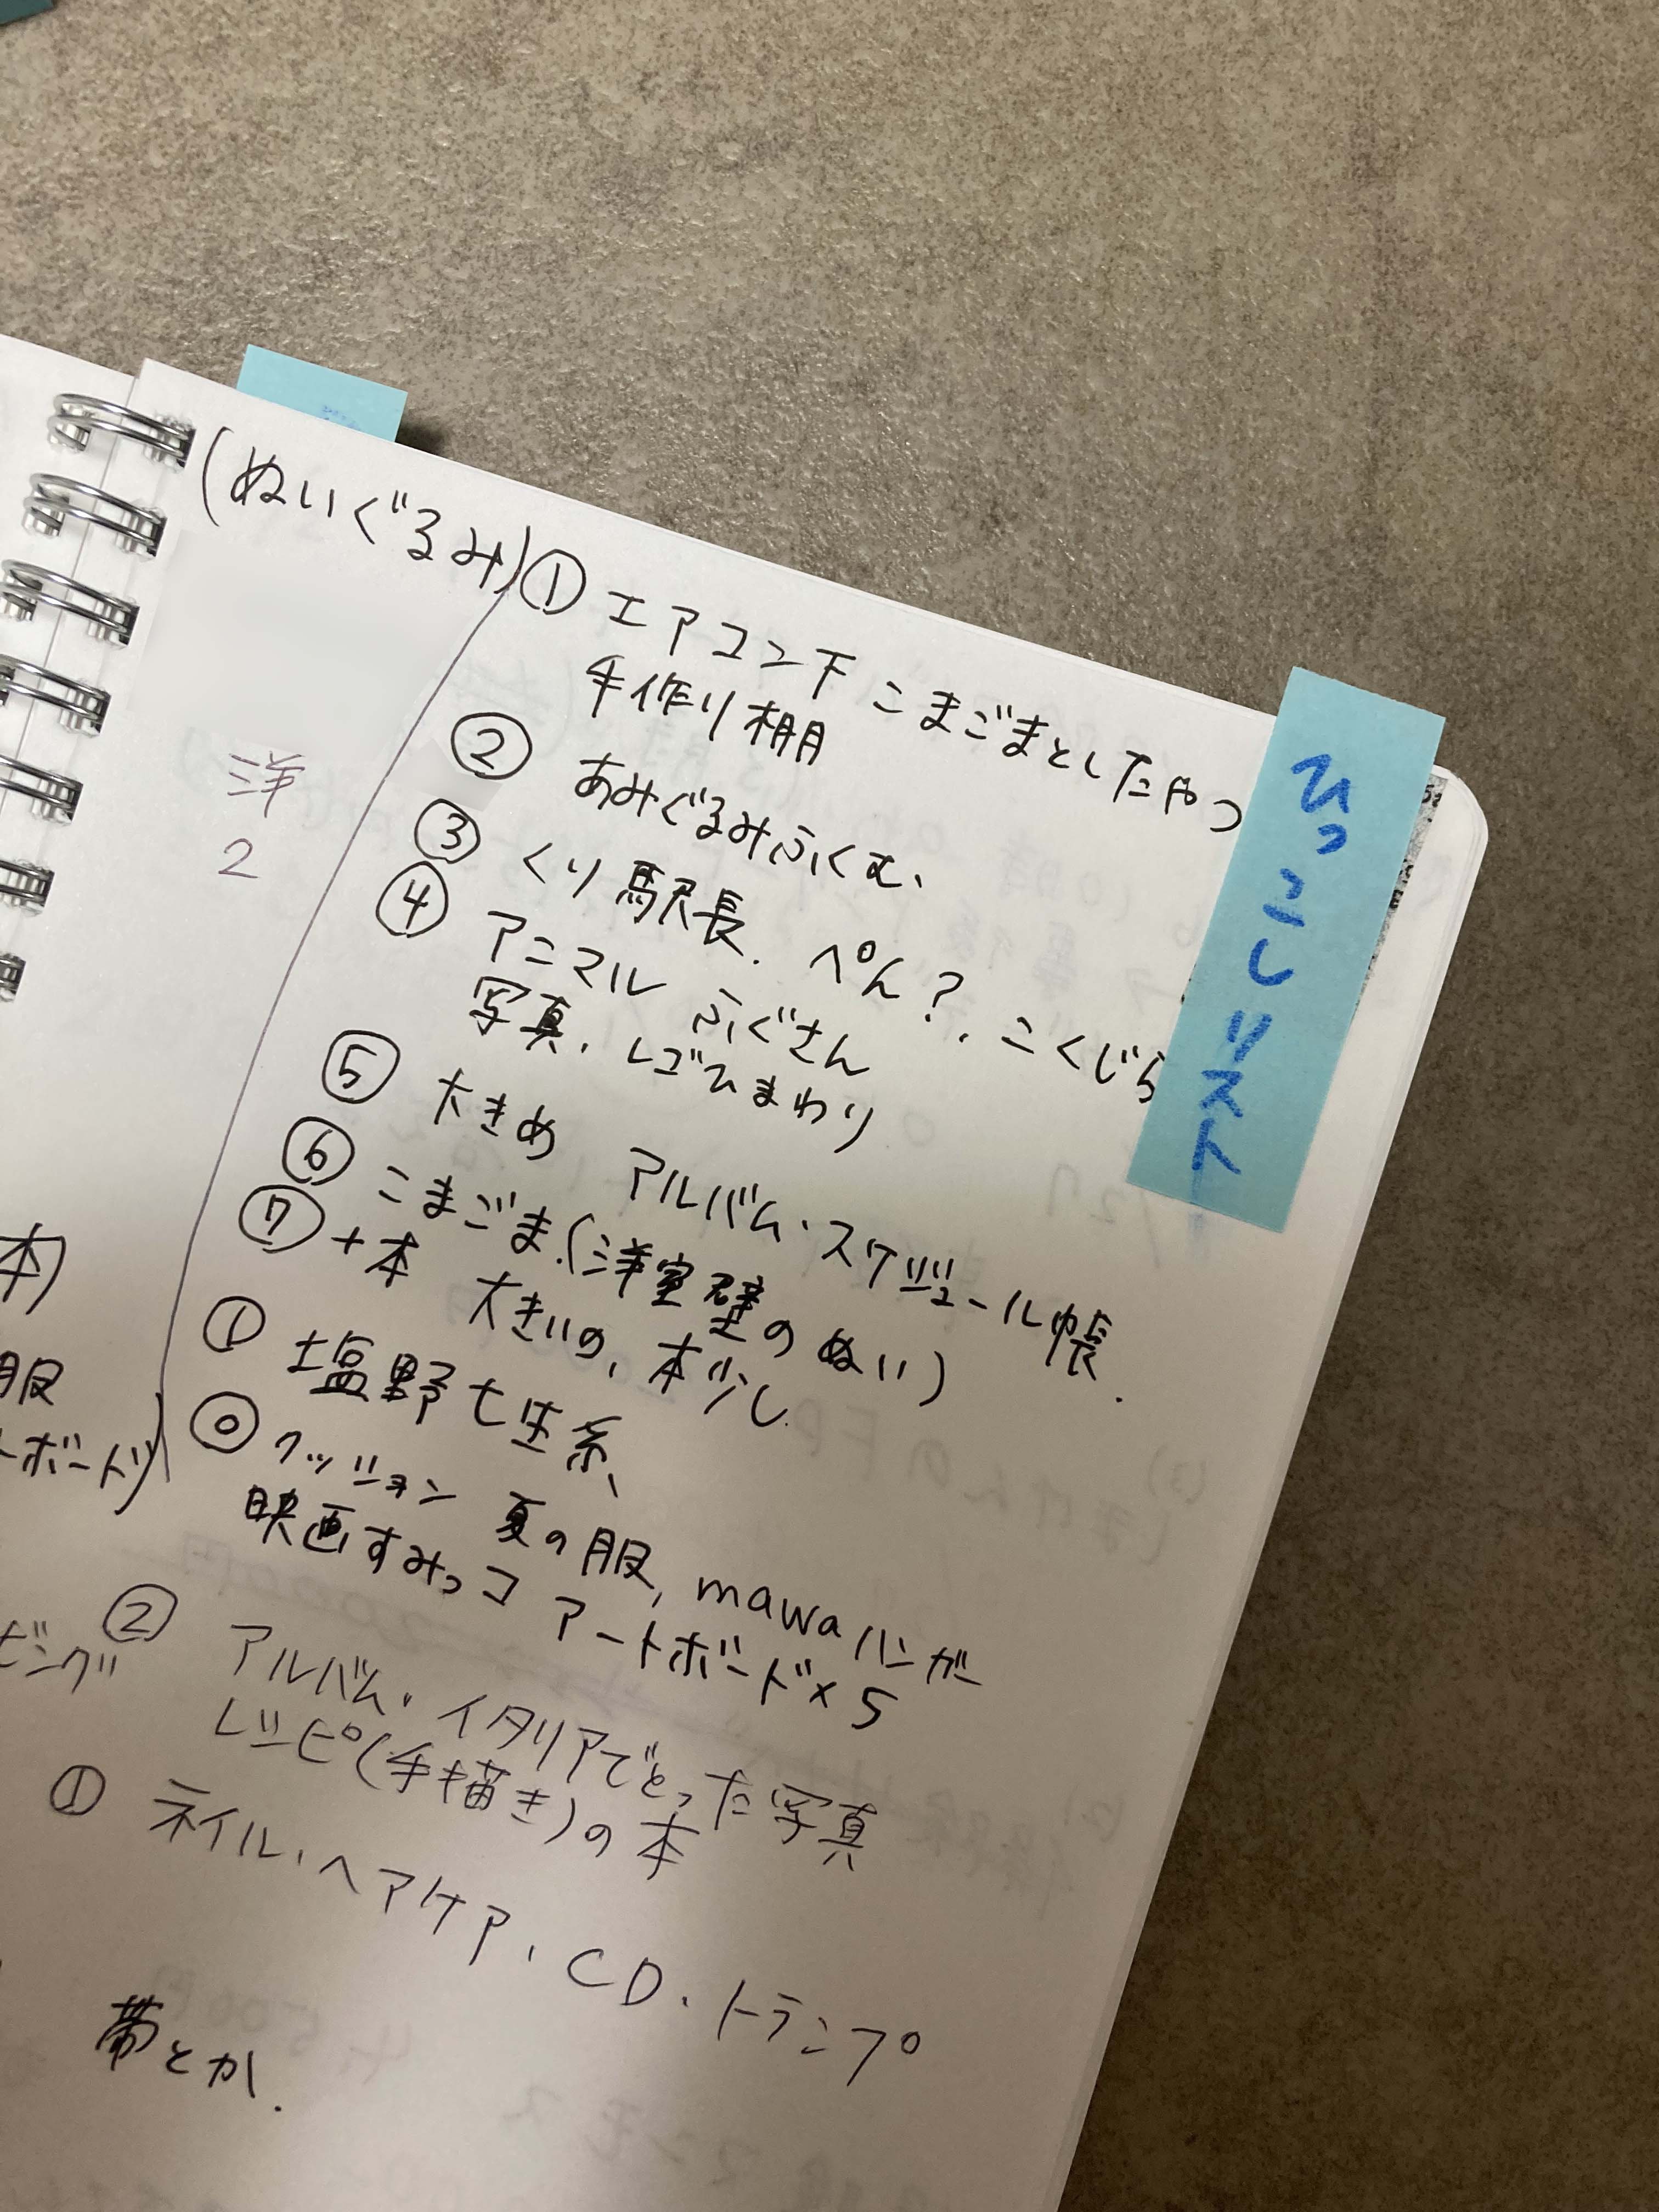 ひっこしリスト
(ぬいぐるみ)
① エアコン下 こまごまとしたやつ
手作り棚
② あみぐるみふくむ、
③ くり駅長、ぺん?、こくじら
④ アニマル ふぐさん
写真、レゴひまわり
⑤ 大きめ アルバム・スケジュール帳.
⑥ こまごま.(洋室壁のぬい)
⑦ +本 大きいの、本少し
① 塩野七生系、
⓪ クッション 夏の服, mawaハンガー
映画すみっコ アートボード×5
② アルバム、イタリアでとった写真
レシピ(手描き)の本
① ネイル、ヘアケア、CD、トランプ
帯とか.
洋
2
本)
服
トボード)
ピング